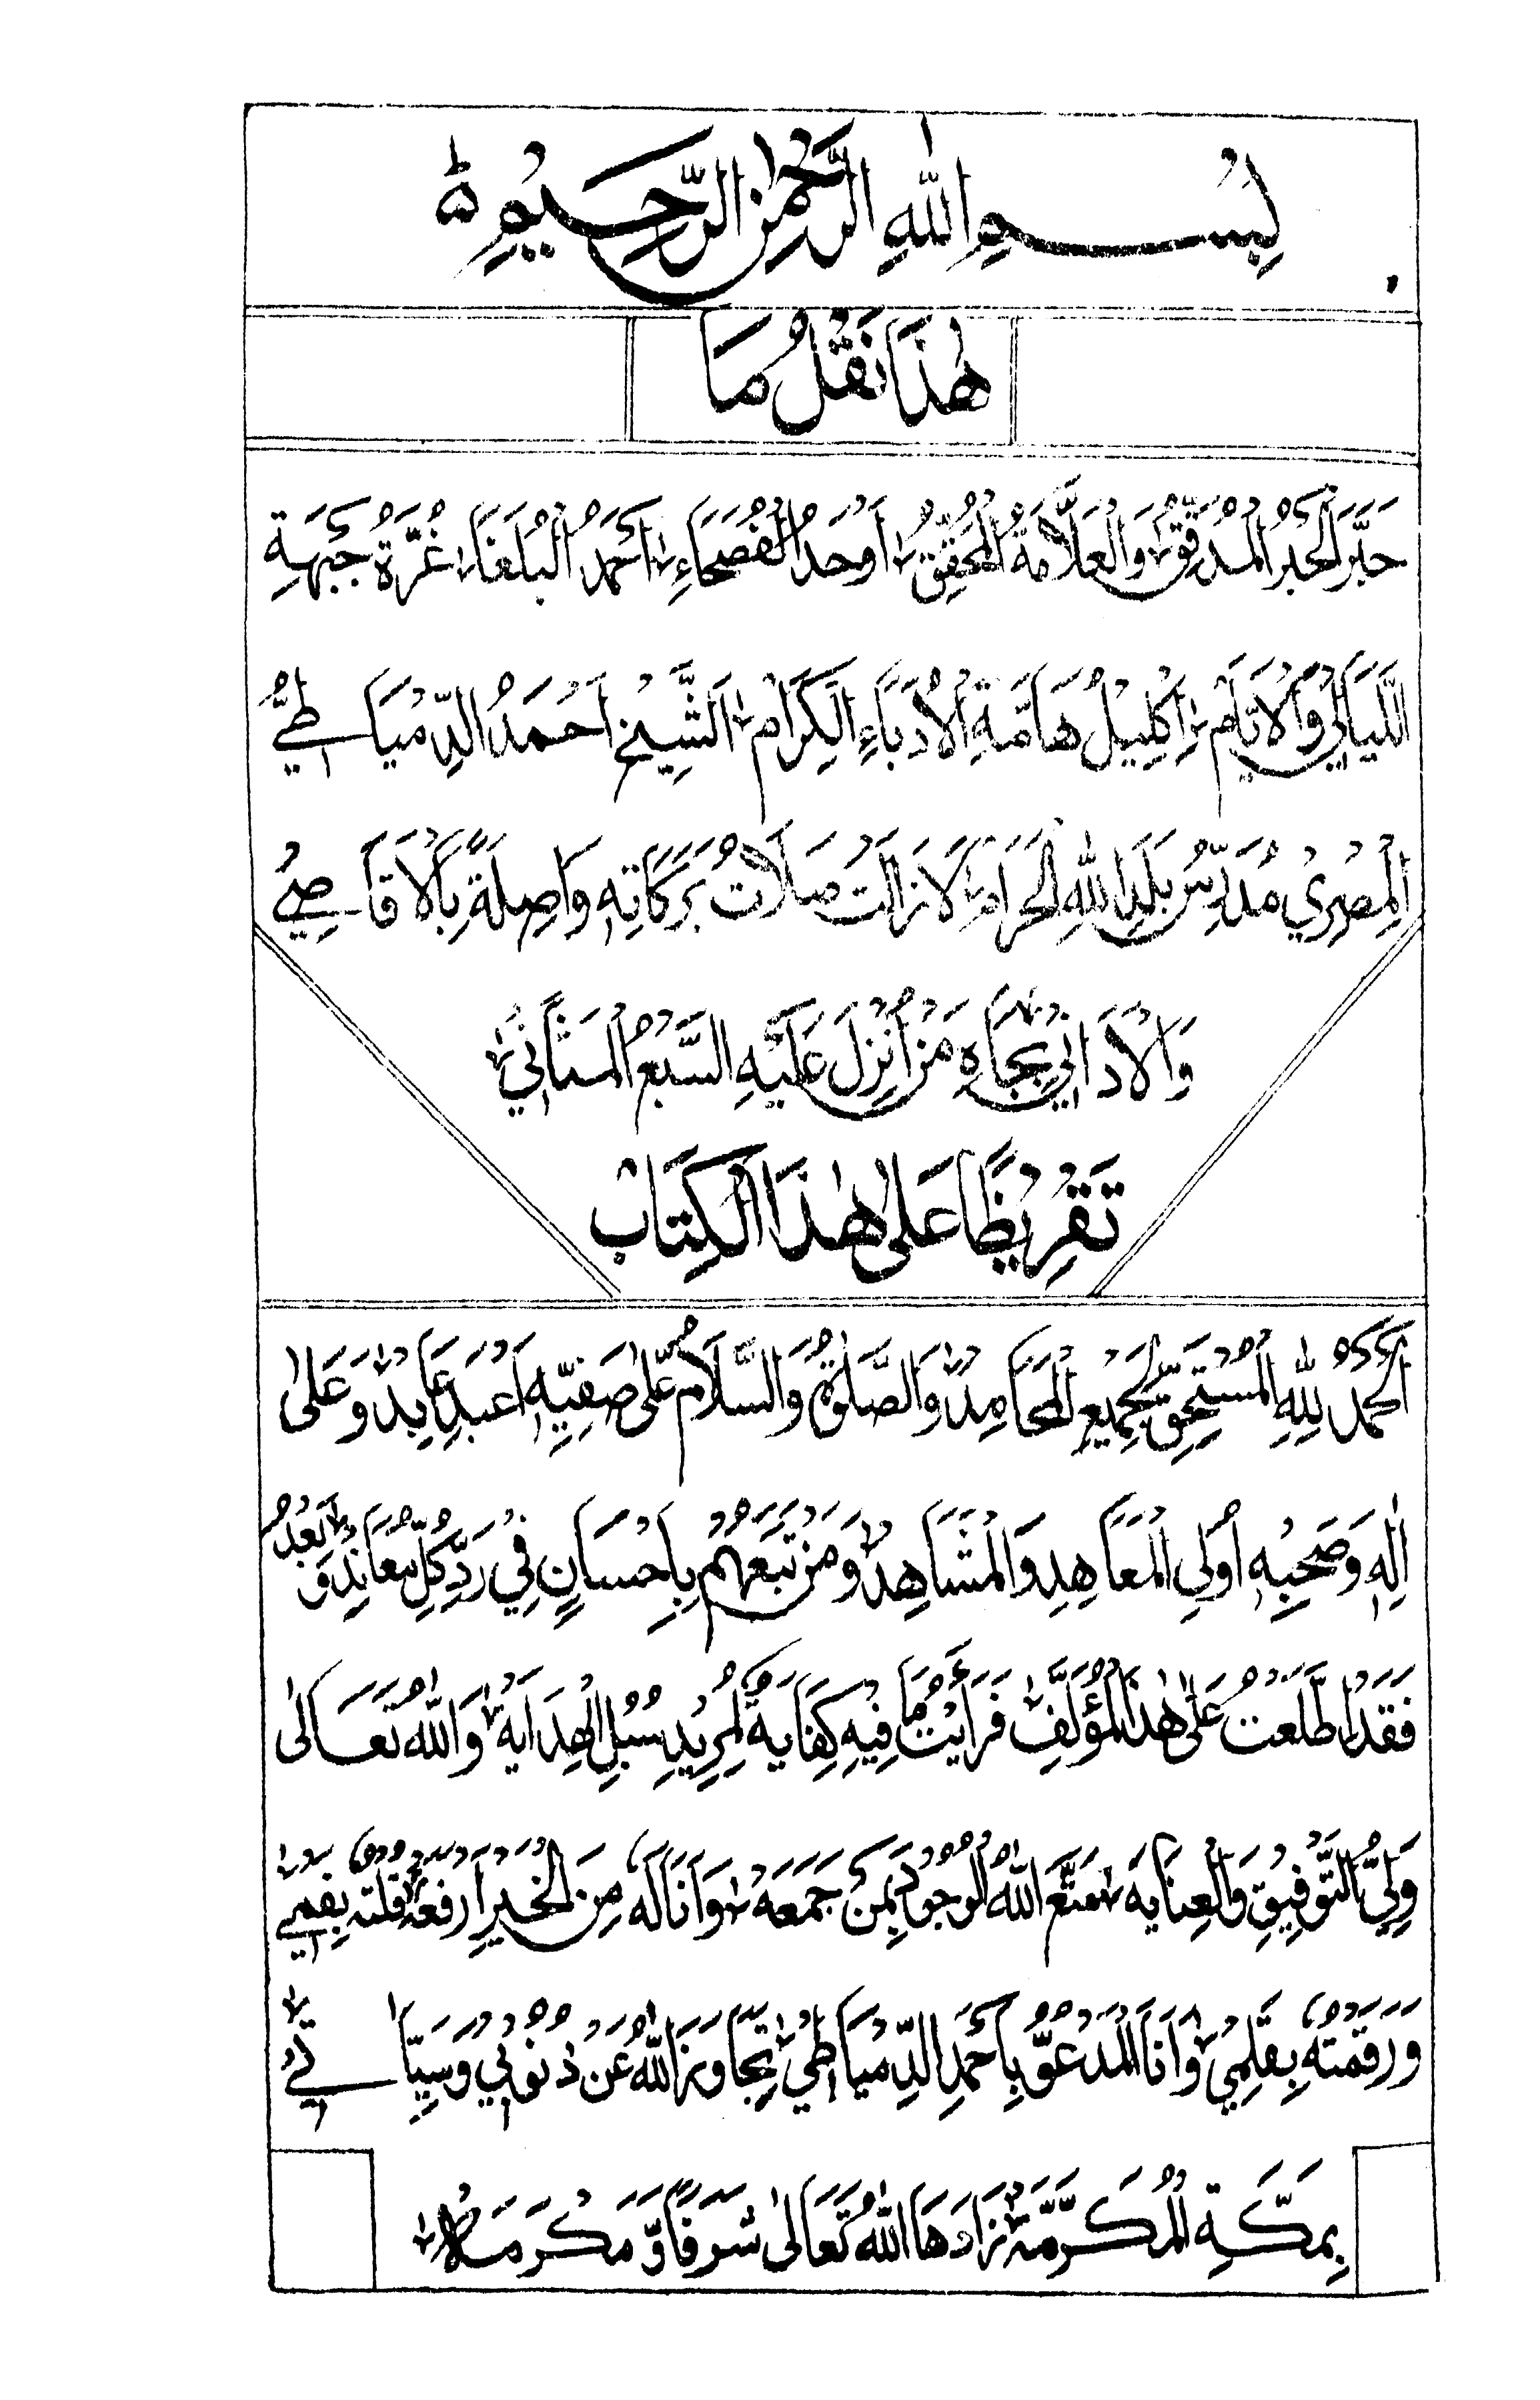 بِسْمِ اللهِ الرَّحْمٰنِ الرَّحِيْمِ ۵
هٰذَا نَقْلُ مَا
حَبَّرَ الْحَبْرُ الْمُدَقِّقُ، وَالْعَلَّامَةُ الْمُحَقِّقُ، اَوْحَدُ الْفُصَحَاءِ، اَحْمَدُ الْبُلَغَاءِ، غُرَّةُ جَبْهَةِ
اللَّيَالِيْ وَالْاَيَّامْ، اِكْلِيْلُ هَامَةِ الْاُدَبَاءِ الْكِرَامْ، اَلشَّيْخُ اَحْمَدُ الدِّمْيَاطِيُّ
الْمِصْرِيْ مُدَرِّسُ بَلَدِ اللهِ الْحَرَامِ، لَا زَالَتْ صَلَاتُ بَرَكَاتِهٖ وَاصِلَةً بِالْاَقَاصِيْ
وَالْاَدَانِيْ بِجَاهِ مَنْ اُنْزِلَ عَلَيْهِ السَّبْعُ الْمَثَانِيْ،
تَقْرِيْظًا عَلٰى هٰذَا الْكِتَابْ
اَلْحَمْدُ لِلّٰهِ الْمُسْتَحِقِّ لِجَمِيْعِ الْمَحَامِدْ، وَالصَّلٰوةُ وَالسَّلَامُ عَلٰى صَفِيِّهٖ اَعْبَدِ عَابِدْ، وَعَلٰى
اٰلِهٖ وَصَحْبِهٖ اُولِي الْمَعَاهِدِ وَالْمَشَاهِدْ، وَمَنْ تَبِعَهُمْ بِاِحْسَانٍ فِيْ رَدِّ كُلِّ مُعَانِدْ، وَبَعْدُ
فَقَدْ اِطَّلَعْتُ عَلٰى هٰذَا الْمُؤَلَّفِ، فَرَاَيْتُ مَا فِيْهِ كِفَايَةٌ لِمُرِيْدِ سُبُلِ الْهِدَايَةْ، وَاللهُ تَعَالٰى
وَلِيُّ التَّوْفِيْقِ وَالْعِنَايَةْ، مَتَّعَ اللهُ الْوُجُوْدَ بِمَنْ جَمَعَهْ، وَاَنَالَهٗ مِنَ الْخَيْرِ اَرْفَعَهْ، قُلْتُهٗ بِفَمِيْ،
وَرَقَمْتُهٗ بِقَلَمِيْ، وَاَنَا الْمَدْعُوُّ بِاَحْمَدِ الدِّمْيَاطِيْ، تَجَاوَزَ اللهُ عَنْ ذُنُوْبِيْ وَسَيِّاٰتِيْ،
بِمَكَّةِ الْمُكَرَّمَةْ، زَادَهَا اللهُ تَعَالٰى شَرَفًا وَّمَكْرَمَةً،